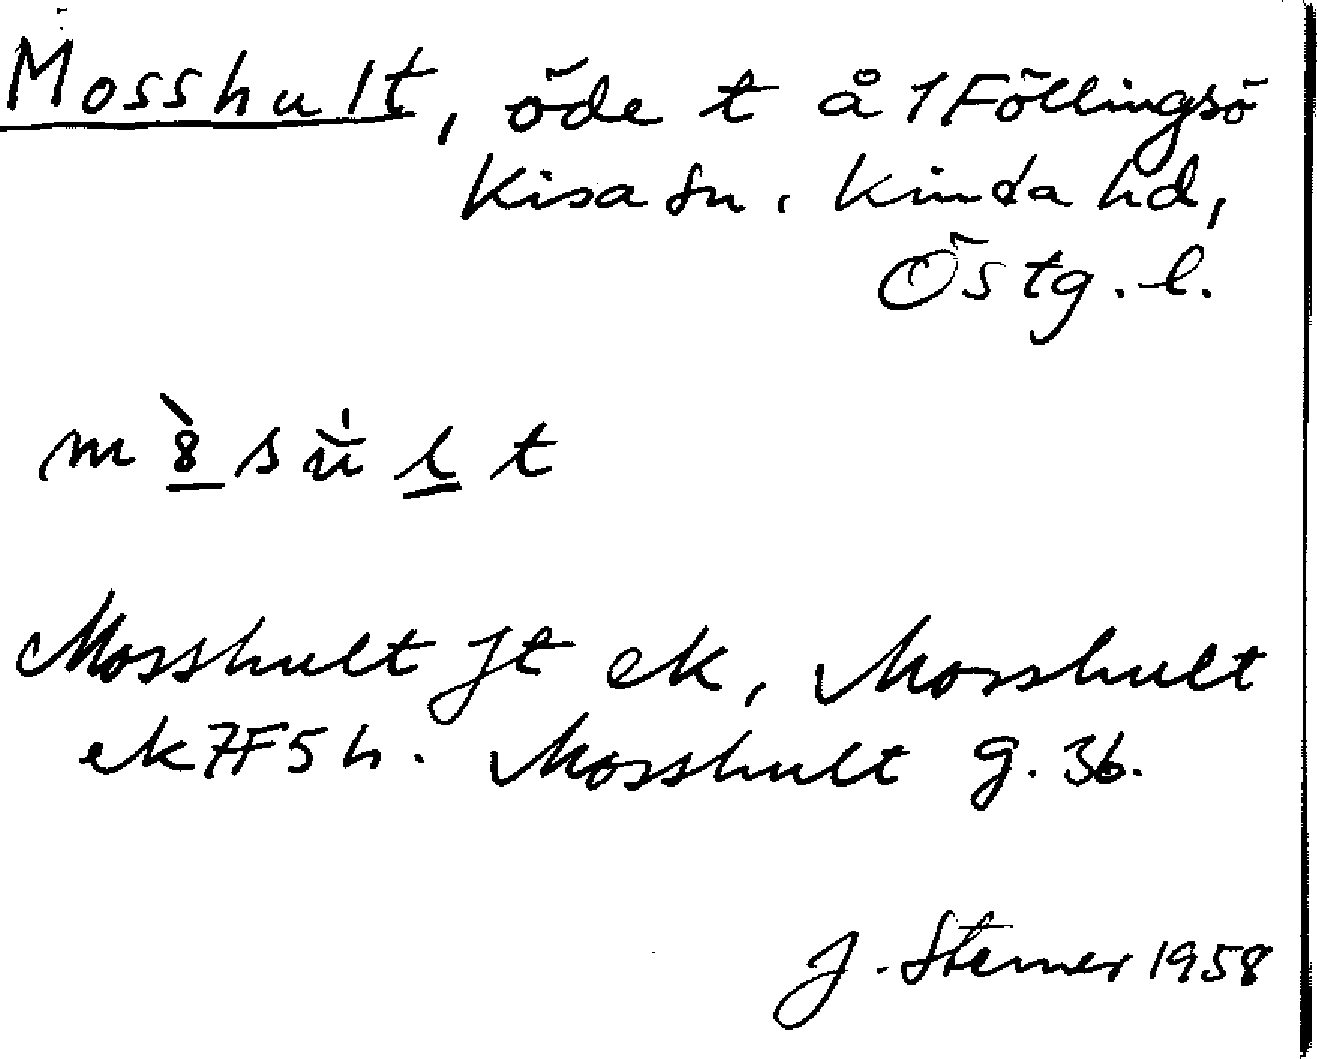 Mosshult, öde t å 1 Föllingsö
Kisa sn. Kinda hd,
Östg. l.
m 8̲̀ s ü̍ l̲ t
Mosshult Jt ek, Mosshult
ek 7F5h. Mosshult g. 36.
J. Sterner 1958